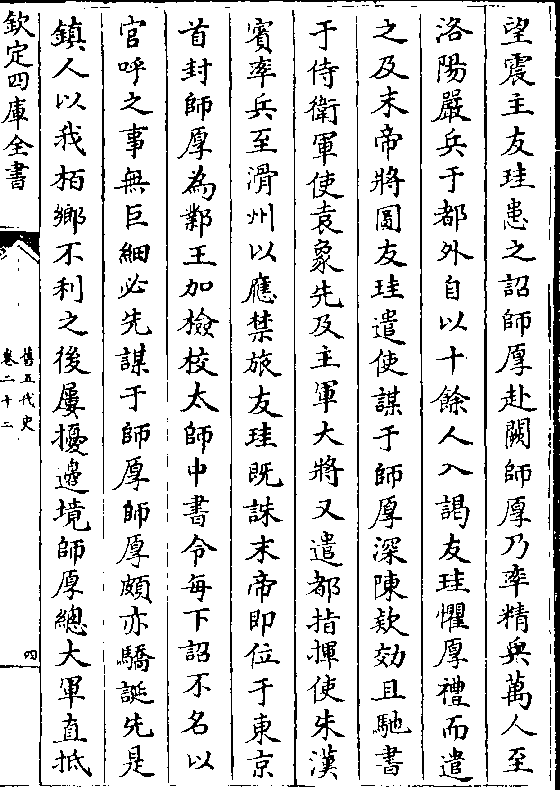 望震主友珪患之詔師厚赴闕師厚乃率精兵萬人至
洛陽嚴兵于都外自以十餘人入謁友珪懼厚禮而遣
之及末帝將圖友珪遣使謀于師厚深陳欵効且馳書
于侍衛軍使袁象先及主軍大將又遣都指揮使朱漢
賔率兵至滑州以應禁旅友珪既誅末帝即位于東京
首封師厚為鄴王加檢校太師中書令每下詔不名以
官呼之事無巨細必先謀于師厚師厚頗亦驕誕先是
鎮人以我栢鄉不利之後屢擾邊境師厚總大軍直抵
欽定四庫全書
舊五代史
卷二十二
四